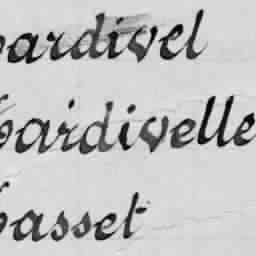 ardivel
ardivelle
asset